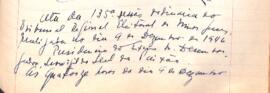 Ata da 135ª sessão ordinaria do
Tribunal Regional Eleitoral de Minas Gerais,
realizada no dia 9 de Dezembro de 1946
Presidencia do Exmo. Sr. Desem-
bargador, Leal da Paixão
As quatorze horas do dia 9 de Dezembro